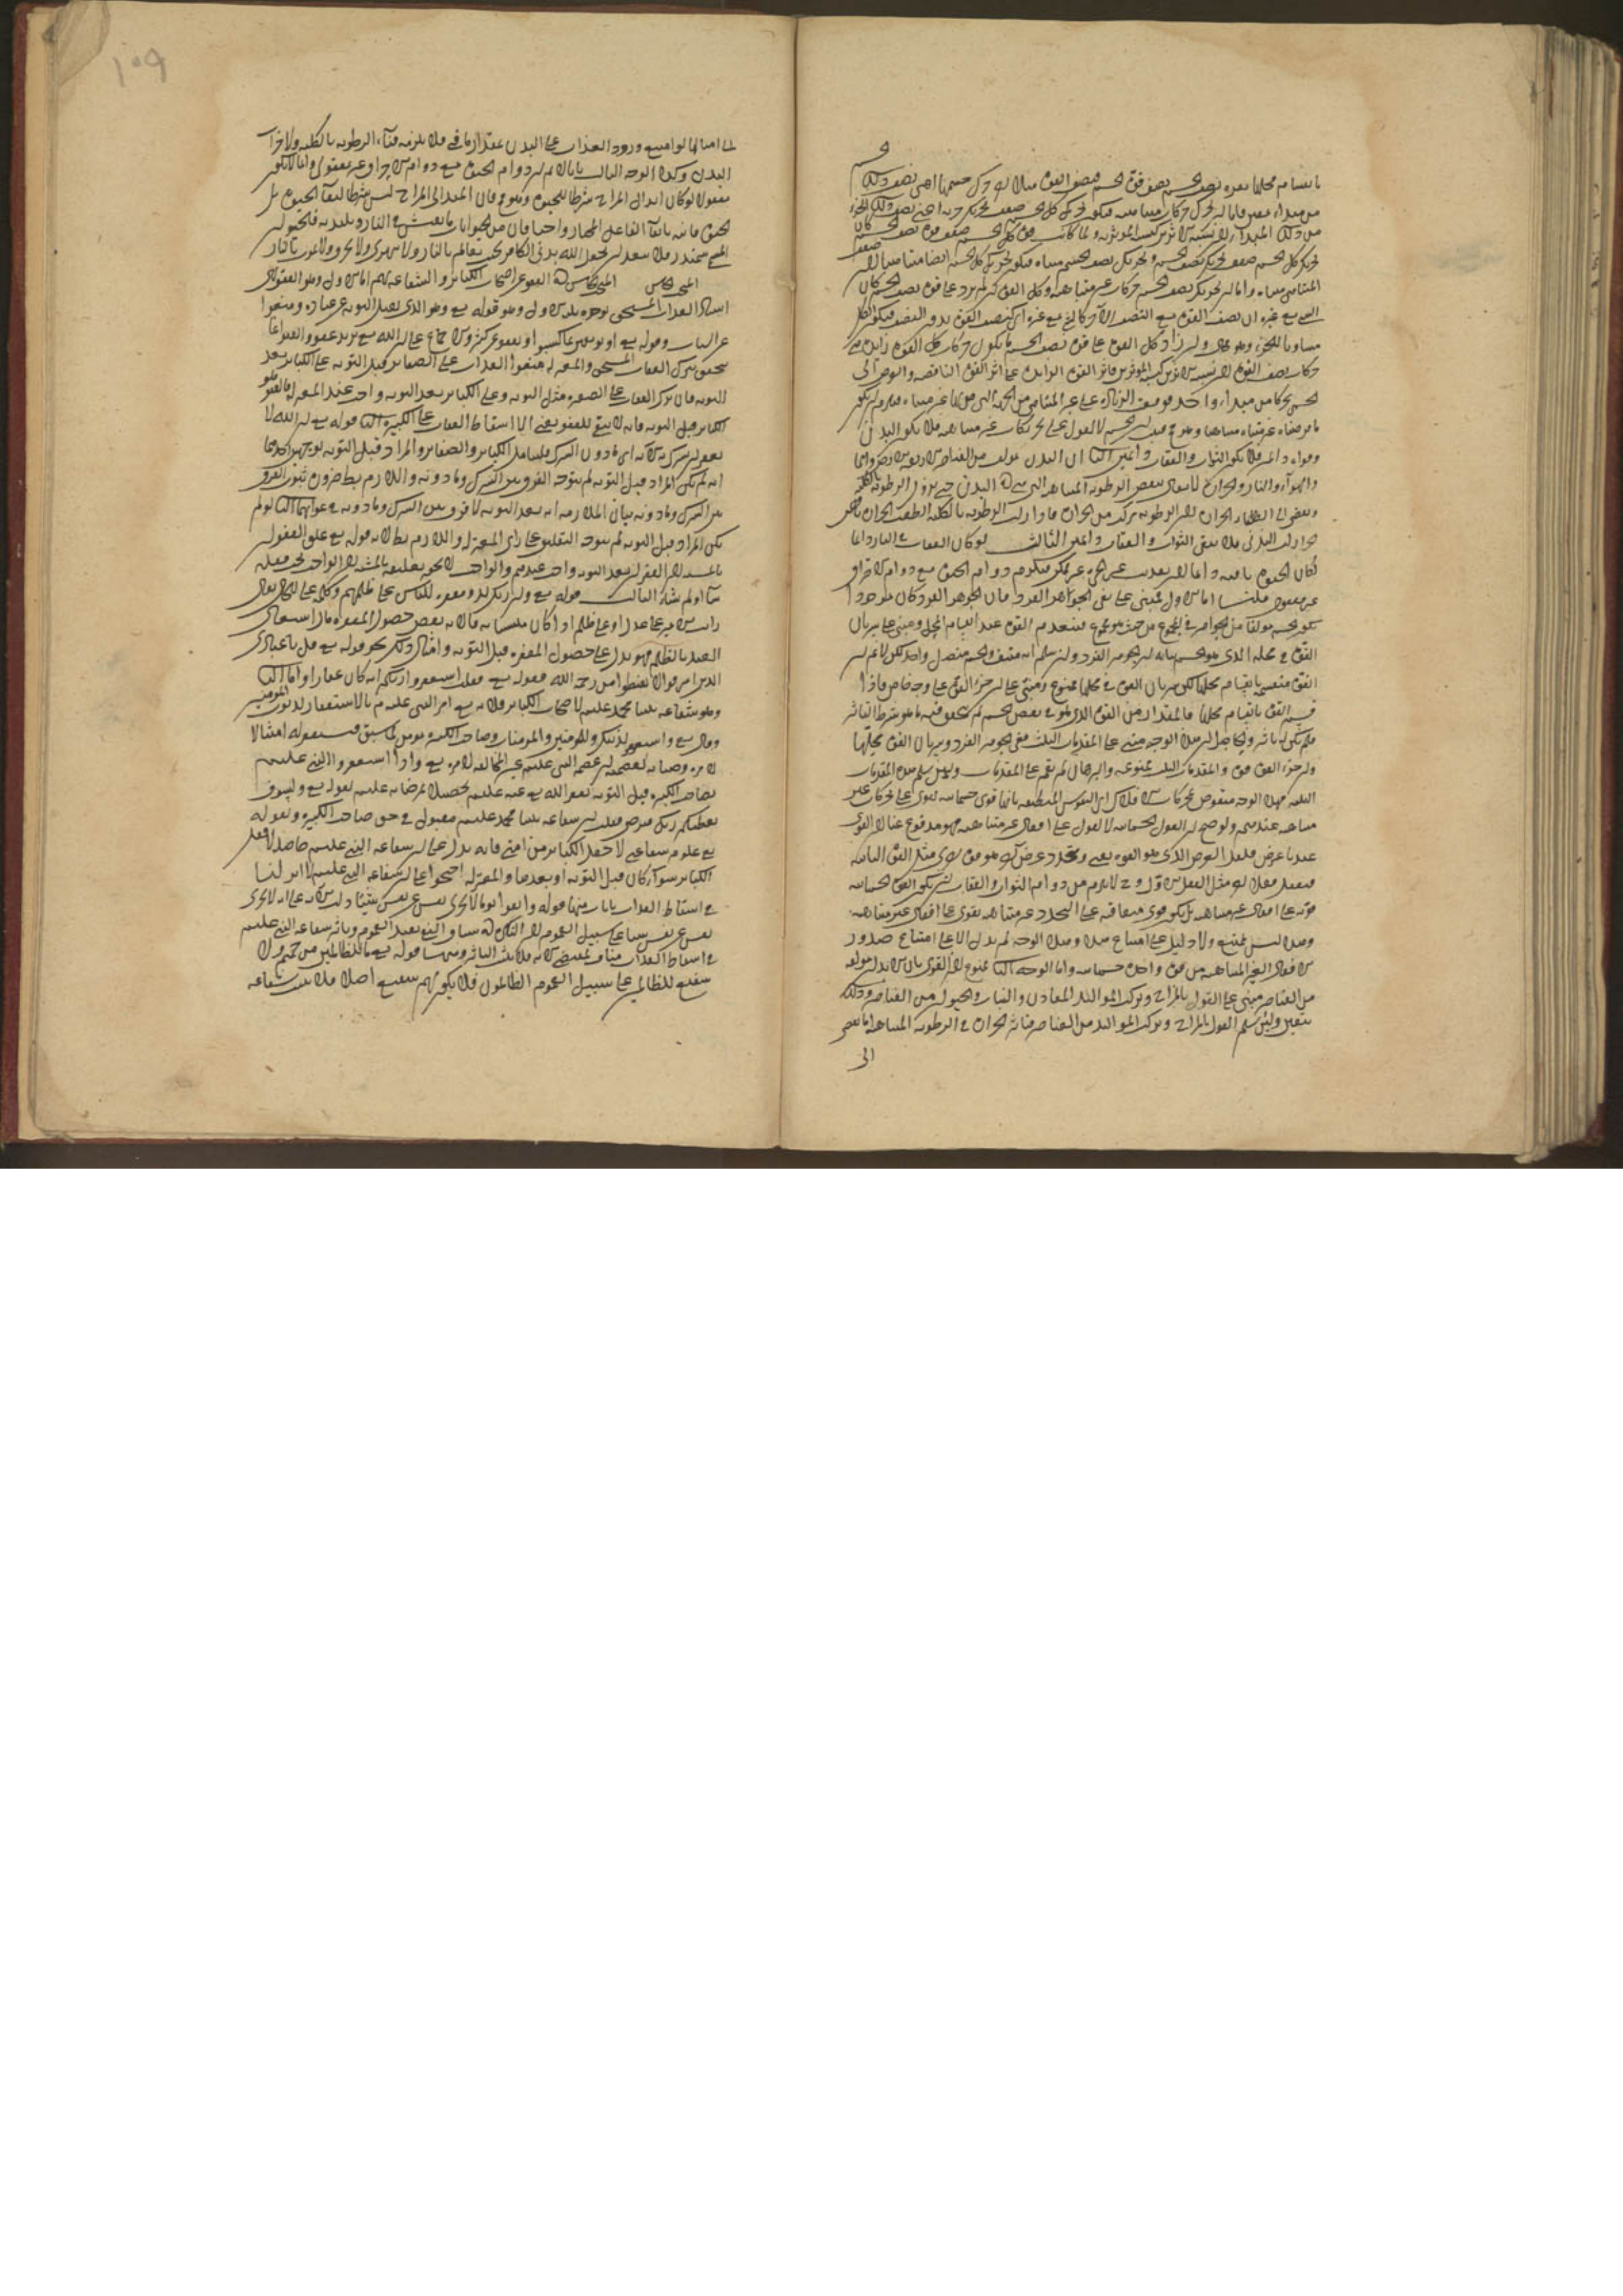 الجسم
بانقسام محلها فقوة نصف الجسم نصف قوة الجسم فنصف القوة مثلا لو حرك جسمها اعنى نصف ذلك
من مبداء معين فاما ان يحرك حركات متناهية فيكون تحريك كل الجسم ضعف تحريك جزئه اعنى نصف ذلك الجزء
من ذلك المبداء لان نسبة الاثرين كنسبة المؤثرين ولما كانت قوة كل الجسم ضعف قوة نصف الجسم كان
تحريك كل الجسم ضعف تحريك نصف الجسم وتحريك نصف الجسم متناه فيكون تحريك كل الجسم ايضا متناهيا لان ضعف
المتناهى متناه واما ان يحرك نصف الجسم حركات غير متناهية وكل القوة ان لم يزد على قوة نصف الجسم كان
الشىء مع غيره اى نصف القوة مع النصف الآخر كالشىء مع غيره اى كنصف القوة بدون النصف فيكون الكل
مساويا للجزء وهو محال وان زاد كل القوة على قوة نصف الجسم يكون حركات كل القوة زايدة على
حركات نصف القوة لان نسبة الاثرين كنسبة المؤثرين فاثر القوة الزايدة على اثر القوة الناقصة والفرض ان
الجسم تحركا من مبداء واحد فوقعت الزيادة على غير المتناهى من الجهة التى هى بها غير متناه فيلزم ان يكون
ما فرضناه غير متناه متناهيا وهو ح فثبت ان الجسم لا يقوى على تحريكات غير متناهية فلا يكون البدن
وقواه دائمين فلا يكون الثواب والعقاب دائمين الثانى ان البدن مؤلف من العناصر الاربعة الارض والماء
والهواء والنار والحرارة لا تزال تنقص الرطوبة المتناهية التى فى البدن حتى تزول الرطوبة بالكلية
ويفضى الى انطفاء الحرارة لان الرطوبة مركب من الحرارة فاذا زالت الرطوبة بالكلية انطفت الحرارة بالضرورة
خراب البدن فلا يبقى الثواب والعقاب دائمين الثالث لو كان العقاب فى النار دائما
لكان الحيوة باقية دائما لان تعذيب غير الحى غير ممكن فيلزم دوام الحيوة مع دوام الاحراق
غير معقول قلنا اما الاول فمبنى على نفى الجواهر الفرد فان الجوهر الفرد لو كان موجودا
يكون الجسم مؤلفا من الجواهر فى المجموع من حيث هو مجموع فتنعدم القوة عند انقسام المحل ومبنى على سريان
القوة فى محله الذى هو الجسم بيانه ان الجوهر الفرد ولئن سلم انه منتف والجسم متصل واحد لكن لا نم ان
القوة منقسمة بانقسام محلها لكن سريان القوة فى محلها ممنوع ومبنى على ان جزء القوة على وجه خاص فاذا
قسمت القوة بانقسام محلها فالمقدار من القوة الذى هو فى بعض الجسم لم يتحقق فيه ما هو شرط التأثير
فلم يكن له تأثير والحاصل ان هذا الوجه مبنى على المقدمات الثلث نفى الجوهر الفرد وسريان القوة محلها
وان جزء القوة قوة والمقدمات الثلث ممنوعة والبرهان لم يقم على المقدمات ولئن سلم هذه المقدمات
الثلثة فهذا الوجه منقوض بحركات الافلاك اى النفوس المنطبعة بانها قوى جسمانية تقوى على تحريكات غير
متناهية عندهم ولو صح ان القوى الجسمانية لا تقوى على افعال غير متناهية فهو مدفوع عنا لان القوى
عندنا عرض فلعل العرض الذى هو القوة يفنى ويتجدد عرض آخر هو قوة اخرى مثل القوة الفانية
فيفعل فعلا آخر مثل الفعل الاول وح لا يلزم من دوام الثواب والعقاب ان يكون القوة الجسمانية
قوية على افعال غير متناهية بل يكون قوى متعاقبة على التجدد غير متناهية تقوى على افعال غير متناهية
وهذا ليس بممتنع ولا دليل على امتناع هذا وهذا الوجه لم يدل الا على امتناع صدور
الافعال الغير المتناهية من قوة واحدة جسمانية واما الوجه الثانى ممنوع لان القول بان الابدان مؤلفة
من العناصر مبنى على القول بالمزاج وتركب المواليد المعادن والنبات والحيوان من العناصر وذلك
متيقن ولئن سلم القول بالمزاج وتركب المواليد من العناصر فتأثير الحرارة فى الرطوبة المتناهية انما يفضى
الى
١٥٩
البدن وكذا الوجه الثالث بانا لا نم ان دوام الحيوة مع دوام الاحراق غير معقول وانما لا يكون
معقولا لو كان اعتدال المزاج شرطا للحيوة وهو ممنوع فان اعتدال المزاج ليس شرطا لبقاء الحيوة بل
الحيوة باقية بابقاء الفاعل المختار واحيا فان من الحيوانات ما يعيش فى النار ويلتذ به فالحيوان
المسمى سمندر فلا يبعد ان يجعل الله بدن الكافر بحيث يتألم بالنار ولا يموت
المبحث الخامس فى العفو عن اصحاب الكبائر والشفاعة لهم اما الاول وهو العفو
اسقاط العذاب المستحق لوجوه ثلثة الاول وهو قوله تع وهو الذى يقبل التوبة عن عباده ويعفوا
عن السيئات وقوله تع او يوبقهن بما كسبوا ويعفو عن كثير والاجماع على ان الله تع عفو والعفو انما
يتحقق بترك العقاب المستحق والمعتزلة منعوا العذاب على الصغائر قبل التوبة وعلى الكبائر بعد
التوبة فان ترك العقاب على الصغيرة قبل التوبة وعلى الكبائر بعد التوبة واجب عند المعتزلة فالعفو هو
الكبائر قبل التوبة فانه لا يبقى للعفو معنى الا اسقاط العقاب على الكبيرة الثانى قوله تع ان الله لا
يغفر ان يشرك به الآية اى ما دون الشرك يشمل الكبائر والصغائر والمراد قبل التوبة لوجهين احدهما
انه لم يكن المراد قبل التوبة لم يتوجه الفرق بين الشرك وما دونه واللازم بط ضرورة ثبوت الفرق
بين الشرك وما دونه بيان الملازمة انه بعد التوبة لا فرق بين الشرك وما دونه فى غفرانهما الثانى لو لم
يكن المراد قبل التوبة لم يتوجه التعليق على رأى المعتزلة واللازم بط لانه قوله تع علق الغفران
بالمشيئة لان الغفران بعد التوبة واجب عندهم والواجب لا يجوز تعليقه بالمشيئة لان الواجب يجب فعله
شاء او لم يشاء الثالث قوله تع وان ربك لذو مغفرة للناس على ظلمهم وكلمة على للحال يقال
رأيت الامير على عدله او على ظلمه اذا كان متلبسا به فالآية تقتضى حصول المغفرة حال اشتغال
العبد بالظلم فهو يدل على حصول المغفرة قبل التوبة وامثال ذلك نحو قوله تع قل يا عبادى
الذين اسرفوا لا تقنطوا من رحمة الله وقوله تع فقلت استغفروا ربكم انه كان غفارا واما الثانى
وهو شفاعة نبينا محمد عليه السلم لاصحاب الكبائر فلانه تع امر النبى عليه السلم بالاستغفار لذنوب المؤمنين
وقال تع واستغفر لذنبك وللمؤمنين والمؤمنات وصاحب الكبيرة مؤمن لما سبق فيستغفر له امتثالا
لامره وصيانة لعصمته اى عصمة النبى عليه السلم عن مخالفة امره تع واذا استغفر النبى عليه السلم
لصاحب الكبيرة قبل التوبة يغفر الله تع عنه عليه السلم تحصيلا لمرضاته عليه السلم لقوله تع ولسوف
يعطيك ربك فترضى فثبت ان شفاعة نبينا محمد عليه السلم مقبول فى حق صاحب الكبيرة ولقوله
عليه السلم شفاعتى لاهل الكبائر من امتى فانه يدل على ان شفاعة النبى عليه السلم حاصل لاهل
الكبائر سواء كان قبل التوبة او بعدها والمعتزلة احتجوا على ان شفاعة النبى عليه السلم لا اثر لها
فى اسقاط العذاب بآيات منها قوله واتقوا يوما لا تجزى نفس عن نفس شيئا دلت الآية على انه لا تجزى
نفس عن نفس شيئا على سبيل العموم لان النكرة فى سياق النفى تفيد العموم وتأثير شفاعة النبى عليه السلم
فى اسقاط العذاب مناف لمقتضى الآية فلا يثبت التأثير ومنها قوله تع ما للظالمين من حميم ولا
شفيع للظالمين على سبيل العموم الظالمون فلا يكون لهم شفيع اصلا فلا يثبت شفاعة